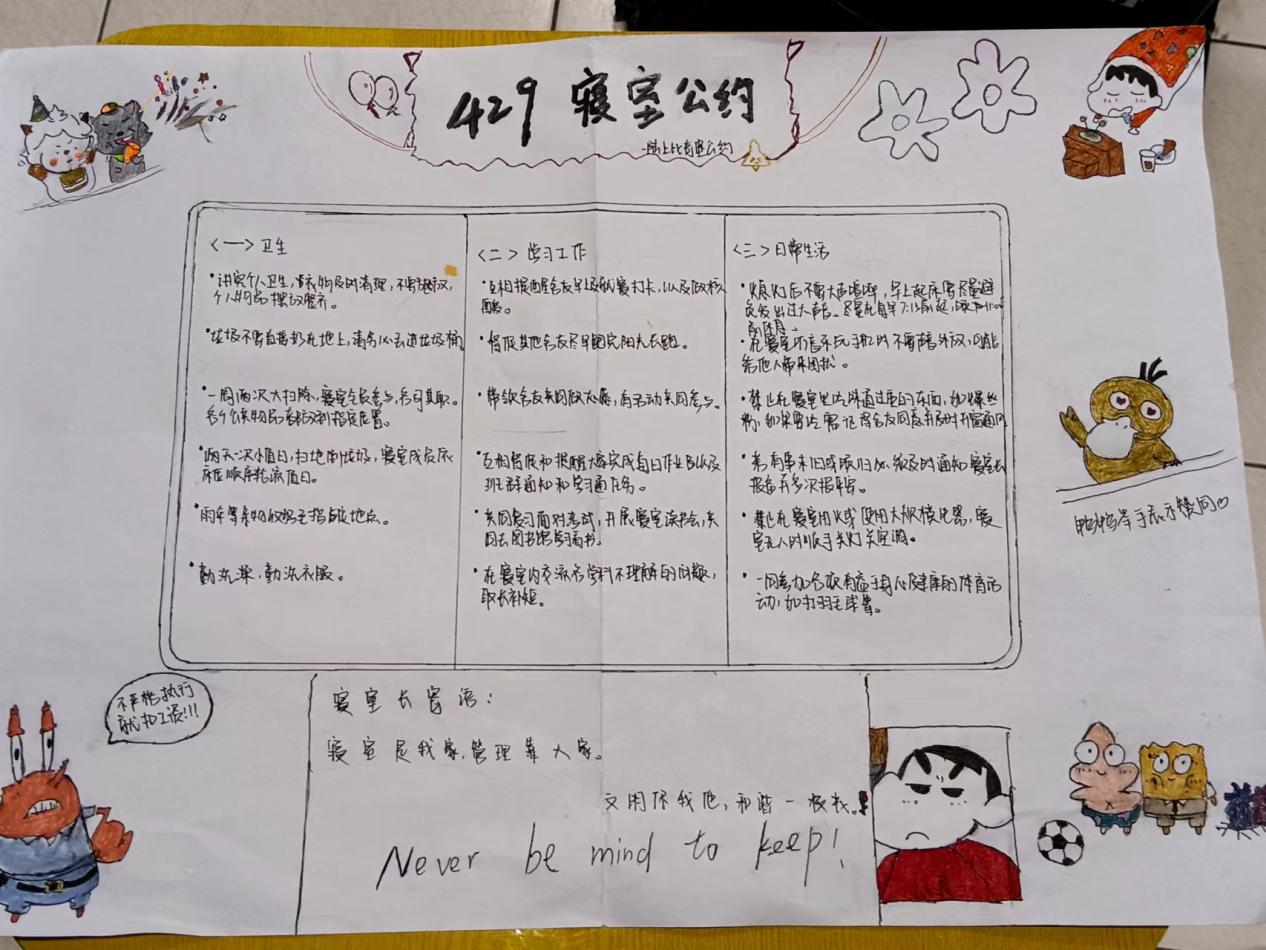 429 寝室公约
-陆上比奇堡公约
<一> 卫生
•讲究个人卫生,衣物及时清理,不要堆放,
个人物品摆放整齐。
•垃圾不要直接扔在地上,请务必丢进垃圾桶
•一周两次大扫除,寝室全员参与,各司其职。
各个体物品摆放到指定位置。
•两天一次小值日,扫地倒垃圾,寝室成员依
床位顺序轮流值日。
•雨伞等杂物收好至指定地点。
•勤洗澡,勤洗衣服。
<二> 学习工作
•互相提醒舍友早上及就寝打卡,以及做核
酸。
•督促其他舍友尽早跑完阳光长跑。
•带领舍友共同做志愿,有活动共同参与。
•互相督促和提醒大家完成每日作业以及
班群通知和学习通任务。
•共同复习面对考试,开展寝室读书会,共
同去图书馆学习看书。
•在寝室内交流各学科不理解的问题,
取长补短。
<三> 日常生活
•熄灯后不要大声喧哗,早上起床要尽量避
免发出过大声音。尽量在每早7:15前起,晚
前休息。
•在寝室听音乐玩手机时不要声音外放,可能
给他人带来困扰。
•禁止在寝室吃味道过重的东西,如螺丝
粉,如果要吃需记得舍友同意并及时开窗通风
•若有事未归或晚归必须及时通知寝室长
报备并多次报平安。
•禁止在寝室用火或使用大规模电器,寝
室无人时顺手关灯关空调。
•一同参加各项有益于身心健康的体育活
动,如打羽毛球等。
鸭鸭举手表示赞同♡
不严格执行
就扣工资!!!
寝室长寄语:
寝室是我家,管理靠大家。
文明你我他,和谐一枝花。
Never be mind to keep!